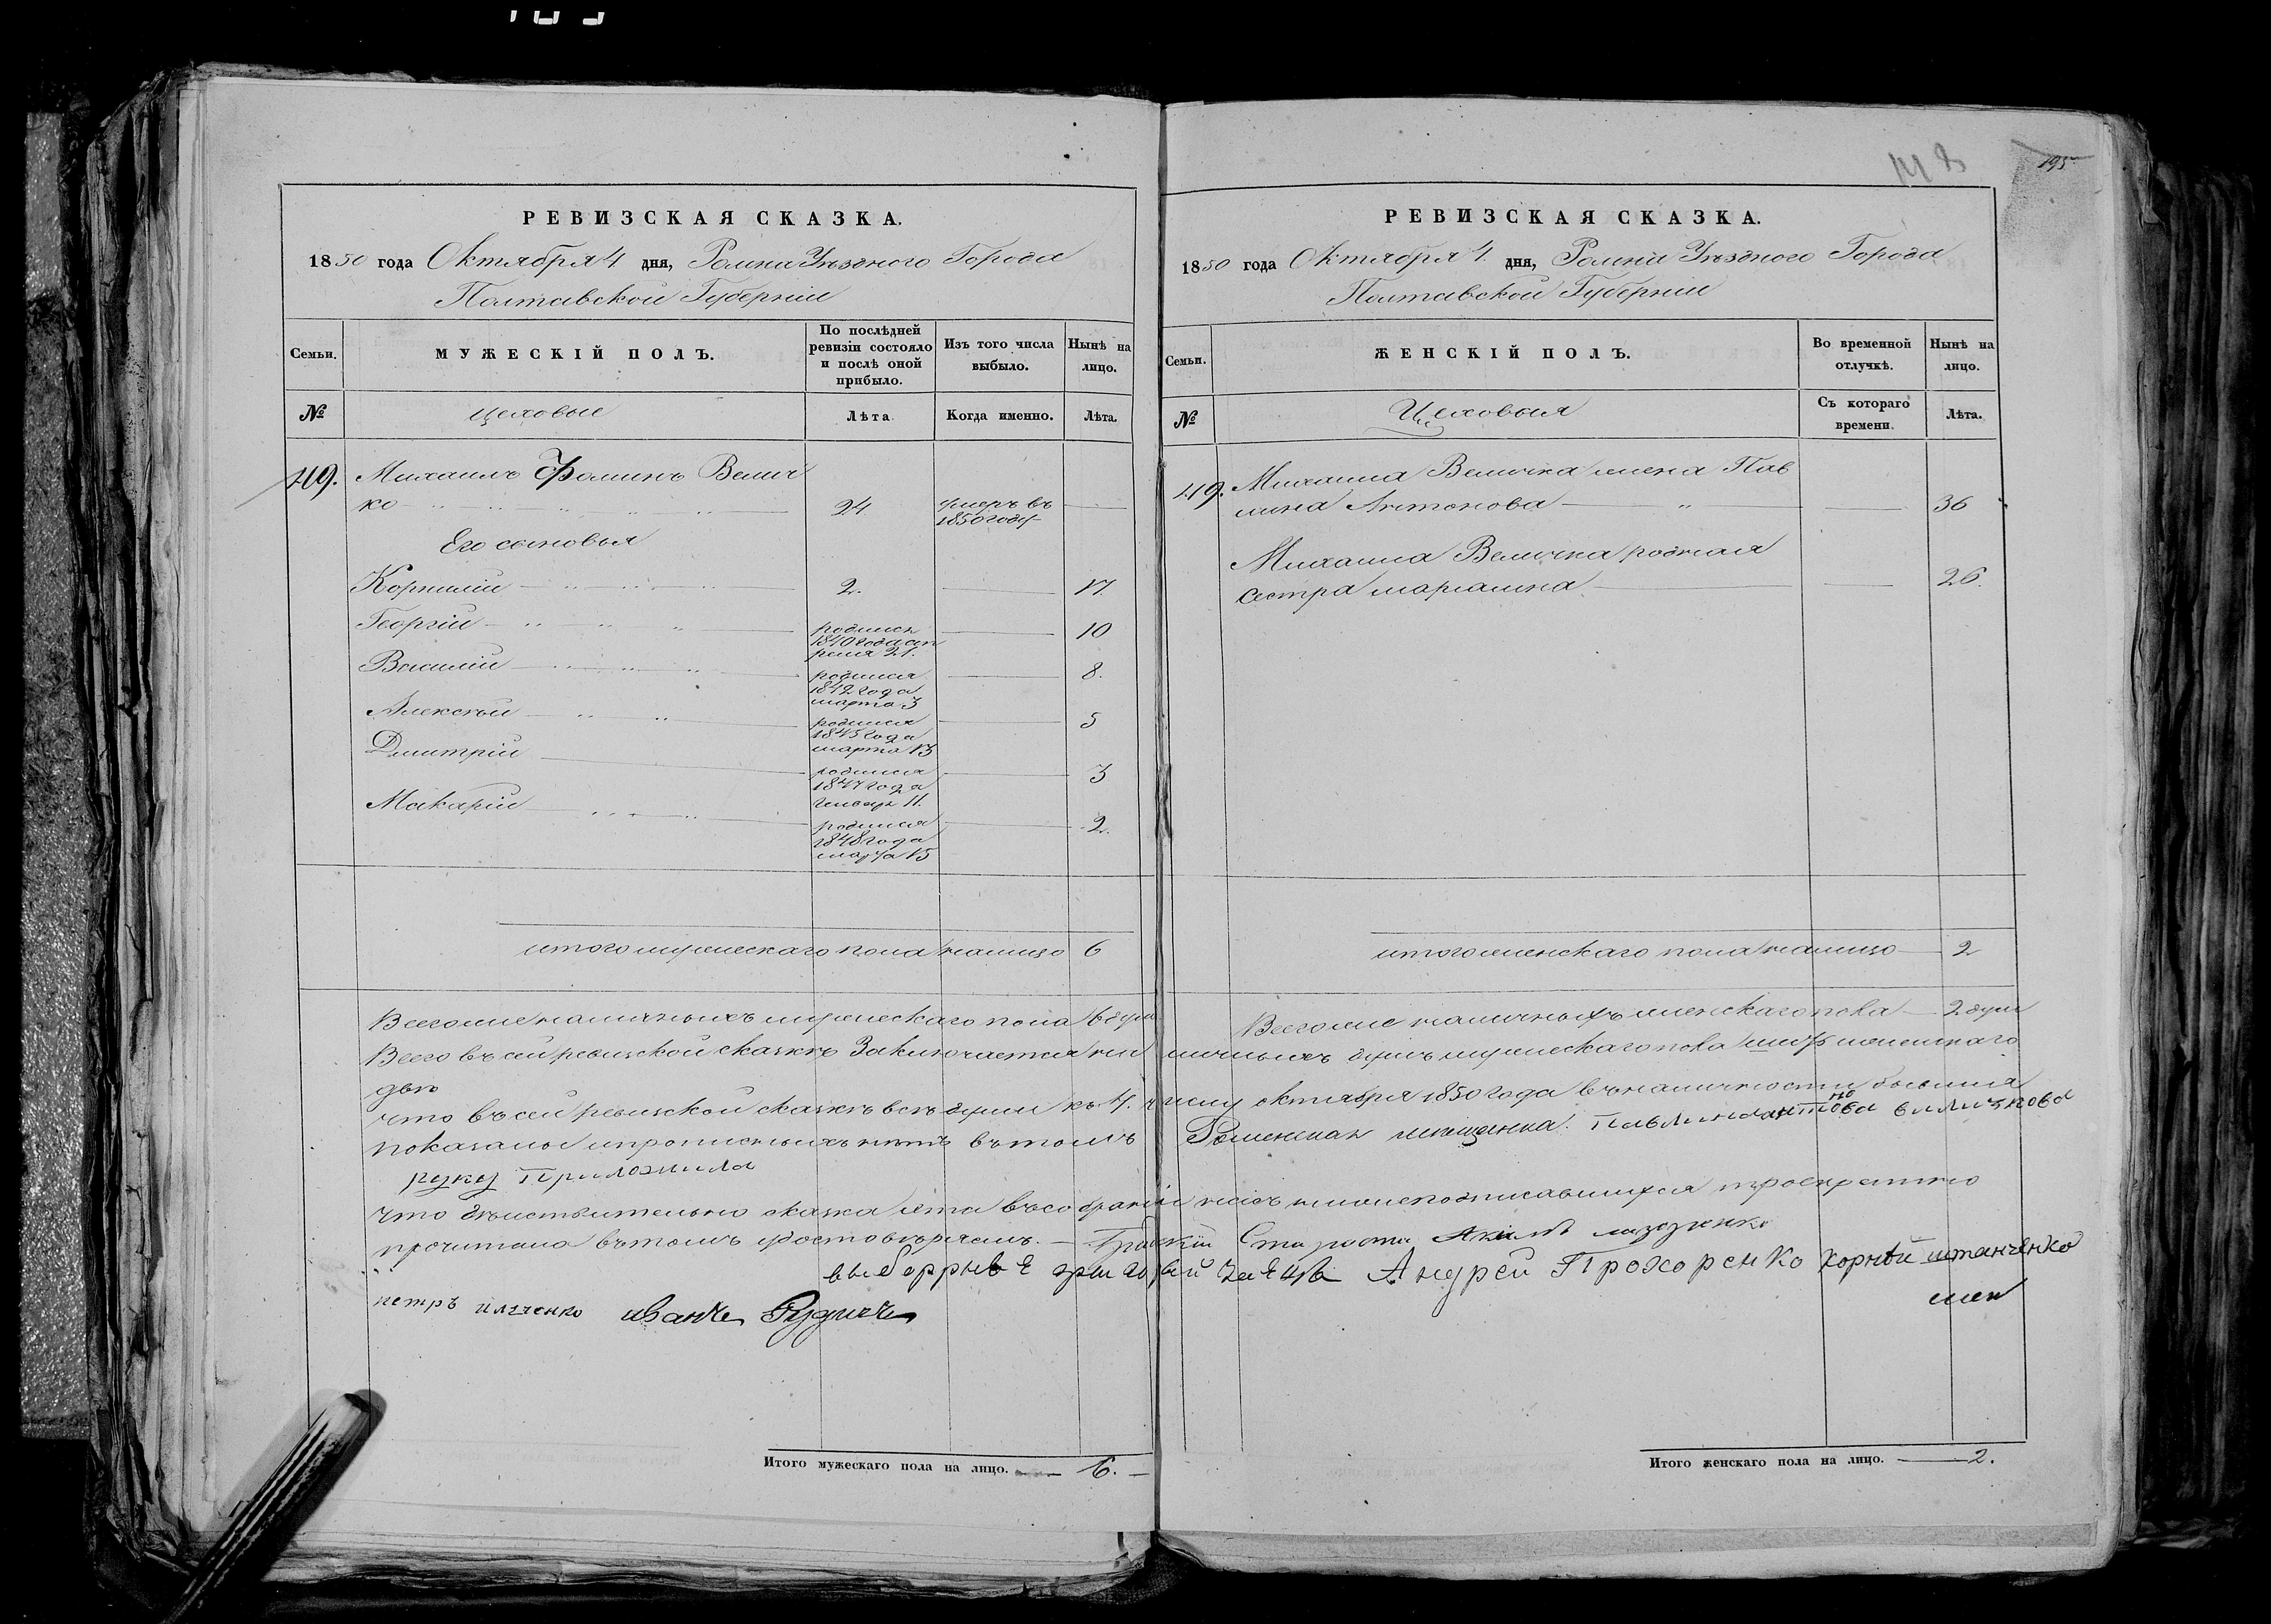 195
РЕВИЗСКАЯ СКАЗКА.
1850 года Октября 4 дня, Ромна Уѣзднаго Города
Полтавской Губерніи
Семьи.
МУЖЕСКІЙ ПОЛЪ.
По послѣдней ревизіи состояло и послѣ оной прибыло.
Изъ того числа выбыло.
Нынѣ на лицо.
№
Цеховые
Лѣта
Когда именно.
Лѣта.
119. Михаилъ Фоминъ Велич
ко 24 умеръ въ
1850 году
Его сыновья
Корнилій 2. 17.
Георгій родился 10
1840 года ап
реля 27.
Василій родился 8.
1842 года
марта 3
Алексѣй родился 5
1845 года
марта 13
Дмитрій родился 3
1847 года
Генваря 11.
Макарій родился 2.
1848 года
марта 15
итого мужескаго пола налицо 6
РЕВИЗСКАЯ СКАЗКА.
1850 года Октября 4. дня, Ромна Уѣзднаго Города
Полтавской Губерніи
Семьи.
ЖЕНСКІЙ ПОЛЪ.
Во временной отлучкѣ.
Нынѣ на лицо.
№
Цеховыя
Съ котораго времени.
Лѣта.
119. Михаила Величка жена Пав
лина Антонова 36
Михаила Величка родная
сестра маріанна 26.
итого женскаго пола налицо 2
Всего же наличныхъ мужескаго пола 6 душ
Всего же наличныхъ женскаго пола 2 души
Всего въ сей ревизской сказкѣ Заключается на личныхъ душъ мужескаго пола шесть женскаго
двѣ
что въ сей ревизской сказкѣ всѣ души къ 4. числу октября 1850 года въ наличности бывшія
показаны и прописныхъ нѣтъ въ томъ Роменская мещанка Павлина антонова величкова
руку Приложила
Что дѣйствительно сказка эта въ собраніи насъ нижеподписавшихся троекратно
прочитана въ томъ удостовѣряемъ. Градскій Староста Акимъ
Андрей Прохоренко
петръ илченко иванъ Рудичъ
Итого мужескаго пола на лицо. 6.
Итого женскаго пола на лицо. 2.